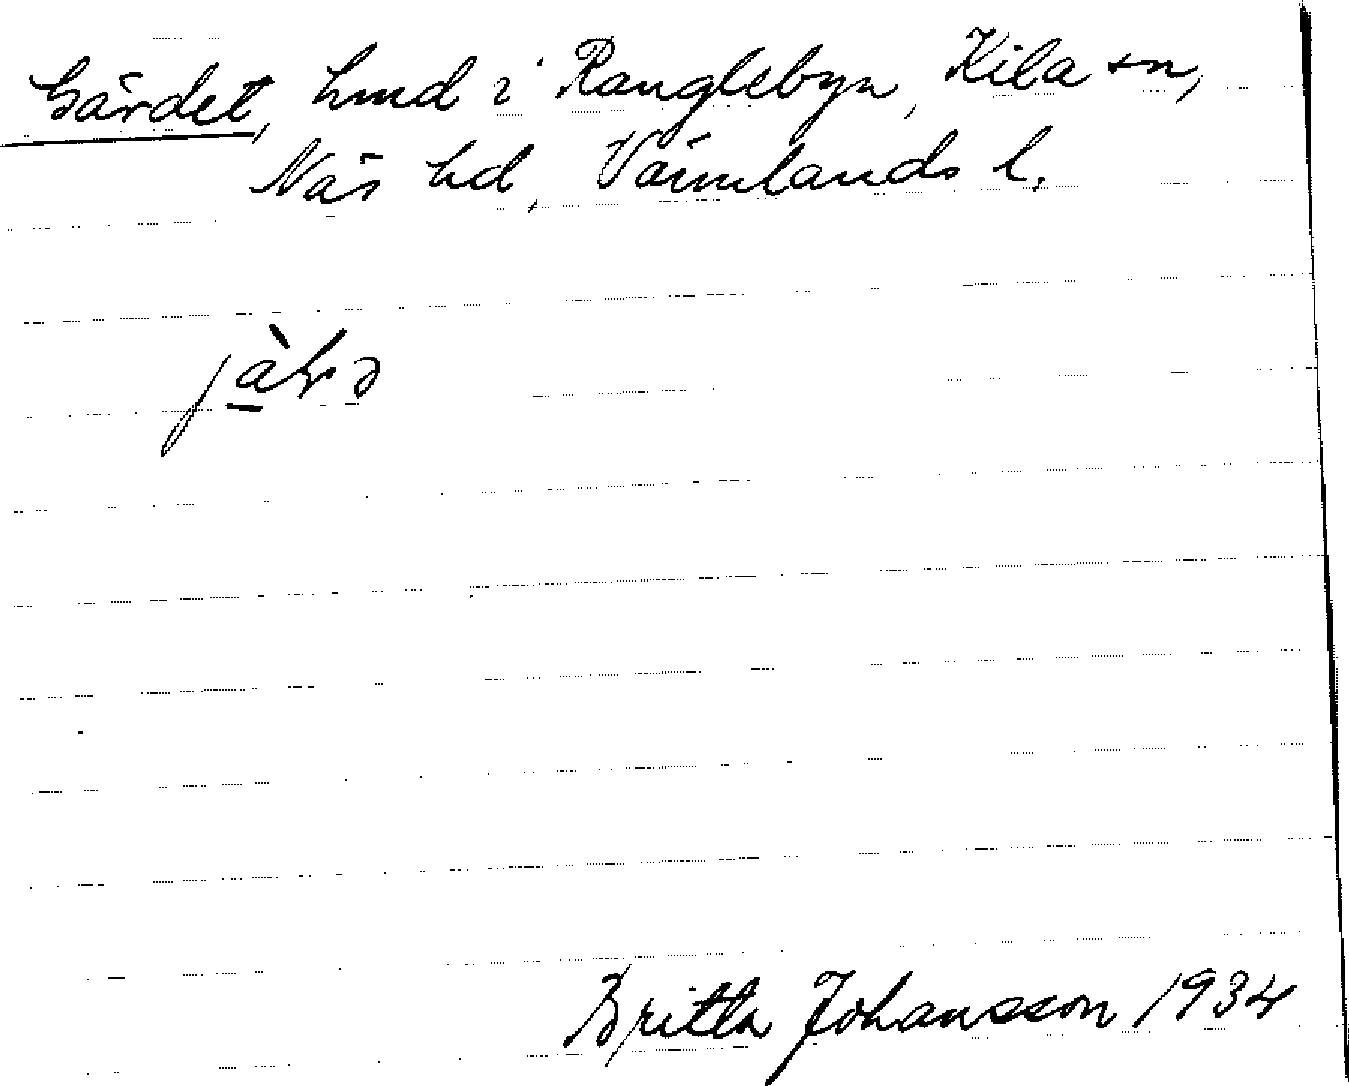 Gärdet, hmd i Ranglebyn, Kila sn,
Näs hd, Värmlands l.
Britta Johansson 1934